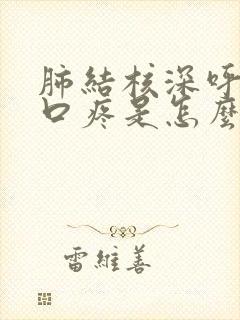 肺結核深呼
口疼是怎麼
雷維善